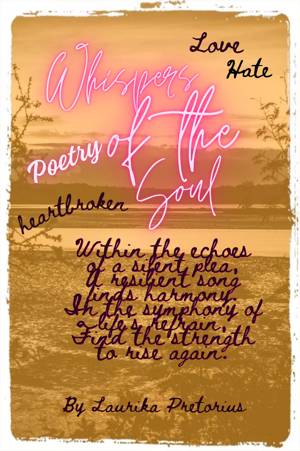 Love
Hate
Whispers
of the
Poetry
Soul
heartbroken
Within the echoes
of a silent plea,
A resilient song
finds harmony.
In the symphony of
Life's refrain,
Find the strength
to rise again.
By Laurika Pretorius